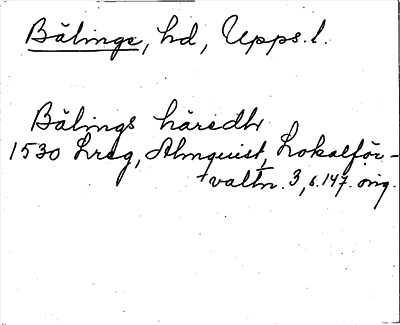 Bälinge, hd, Upps. l.
Bälings häredhr
1530 Lreg, Almquist, Lokalför-
valtn. 3, s. 147. orig.